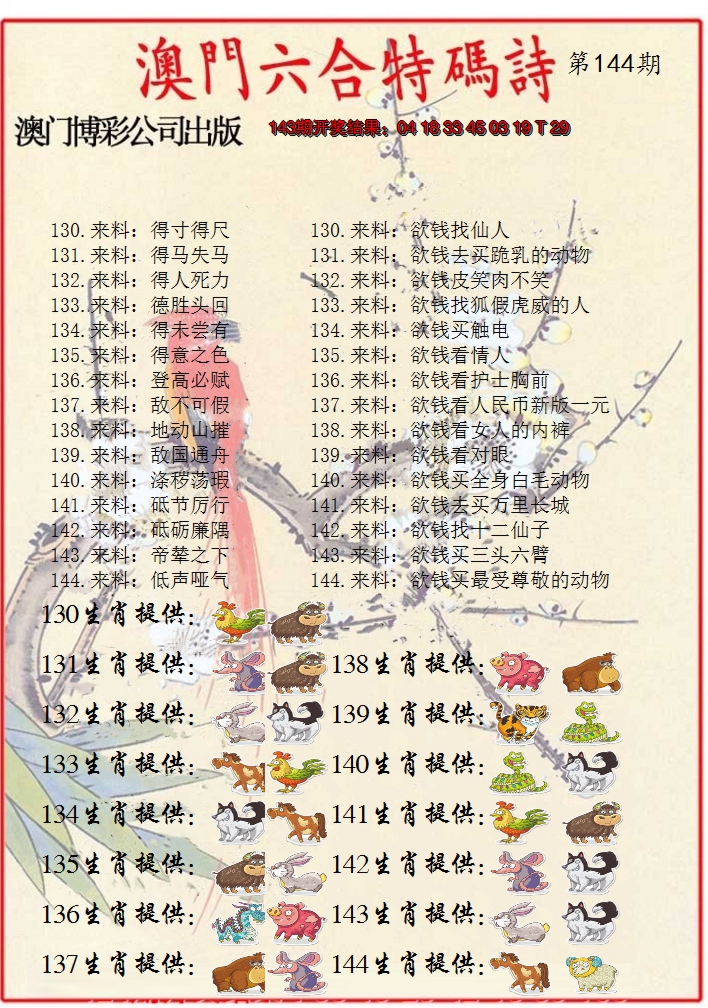 澳門六合特碼詩 第144期
澳门博彩公司出版 143期开奖结果：04 18 33 45 03 19 T 29
130.来料：得寸得尺 130.来料：欲钱找仙人
131.来料：得马失马 131.来料：欲钱去买跪乳的动物
132.来料：得人死力 132.来料：欲钱皮笑肉不笑
133.来料：德胜头回 133.来料：欲钱找狐假虎威的人
134.来料：得未尝有 134.来料：欲钱买触电
135.来料：得意之色 135.来料：欲钱看情人
136.来料：登高必赋 136.来料：欲钱看护士胸前
137.来料：敌不可假 137.来料：欲钱看人民币新版一元
138.来料：地动山摧 138.来料：欲钱看女人的内裤
139.来料：敌国通舟 139.来料：欲钱看对眼
140.来料：涤秽荡瑕 140.来料：欲钱买全身白毛动物
141.来料：砥节厉行 141.来料：欲钱去买万里长城
142.来料：砥砺廉隅 142.来料：欲钱找十二仙子
143.来料：帝辇之下 143.来料：欲钱买三头六臂
144.来料：低声哑气 144.来料：欲钱买最受尊敬的动物
130生肖提供：
131生肖提供： 138生肖提供：
132生肖提供： 139生肖提供：
133生肖提供： 140生肖提供：
134生肖提供： 141生肖提供：
135生肖提供： 142生肖提供：
136生肖提供： 143生肖提供：
137生肖提供： 144生肖提供：